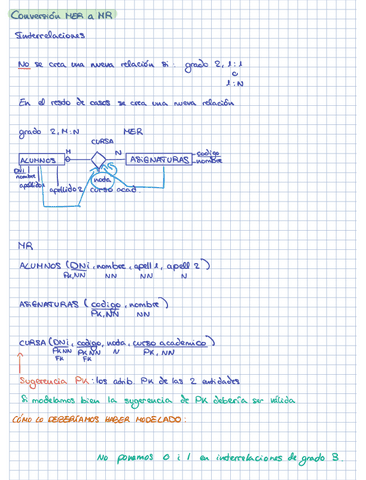 Conversión MER a MR
Interrelaciones
NO se crea una nueva relación si: grado 2, 1:1
o
1:N
En el resto de casos se crea una nueva relación
grado 2, M:N MER
CURSA
M N
ALUMNOS ASIGNATURAS codigo
nombre
DNI
nombre
apellido1
apellido 2
nota
curso acad
MR
ALUMNOS (DNI, nombre, apell 1, apell 2)
PK,NN NN NN N
ASIGNATURAS (codigo, nombre)
PK,NN NN
CURSA (DNI, codigo, nota, curso academico)
PK,NN PK,NN N PK, NN
FK FK
Sugerencia PK: los atrib. PK de las 2 entidades
Si modelamos bien la sugerencia de PK debería ser válida
CÓMO LO DEBERÍAMOS HABER MODELADO:
No ponemos 0 i 1 en interrelaciones de grado 3.